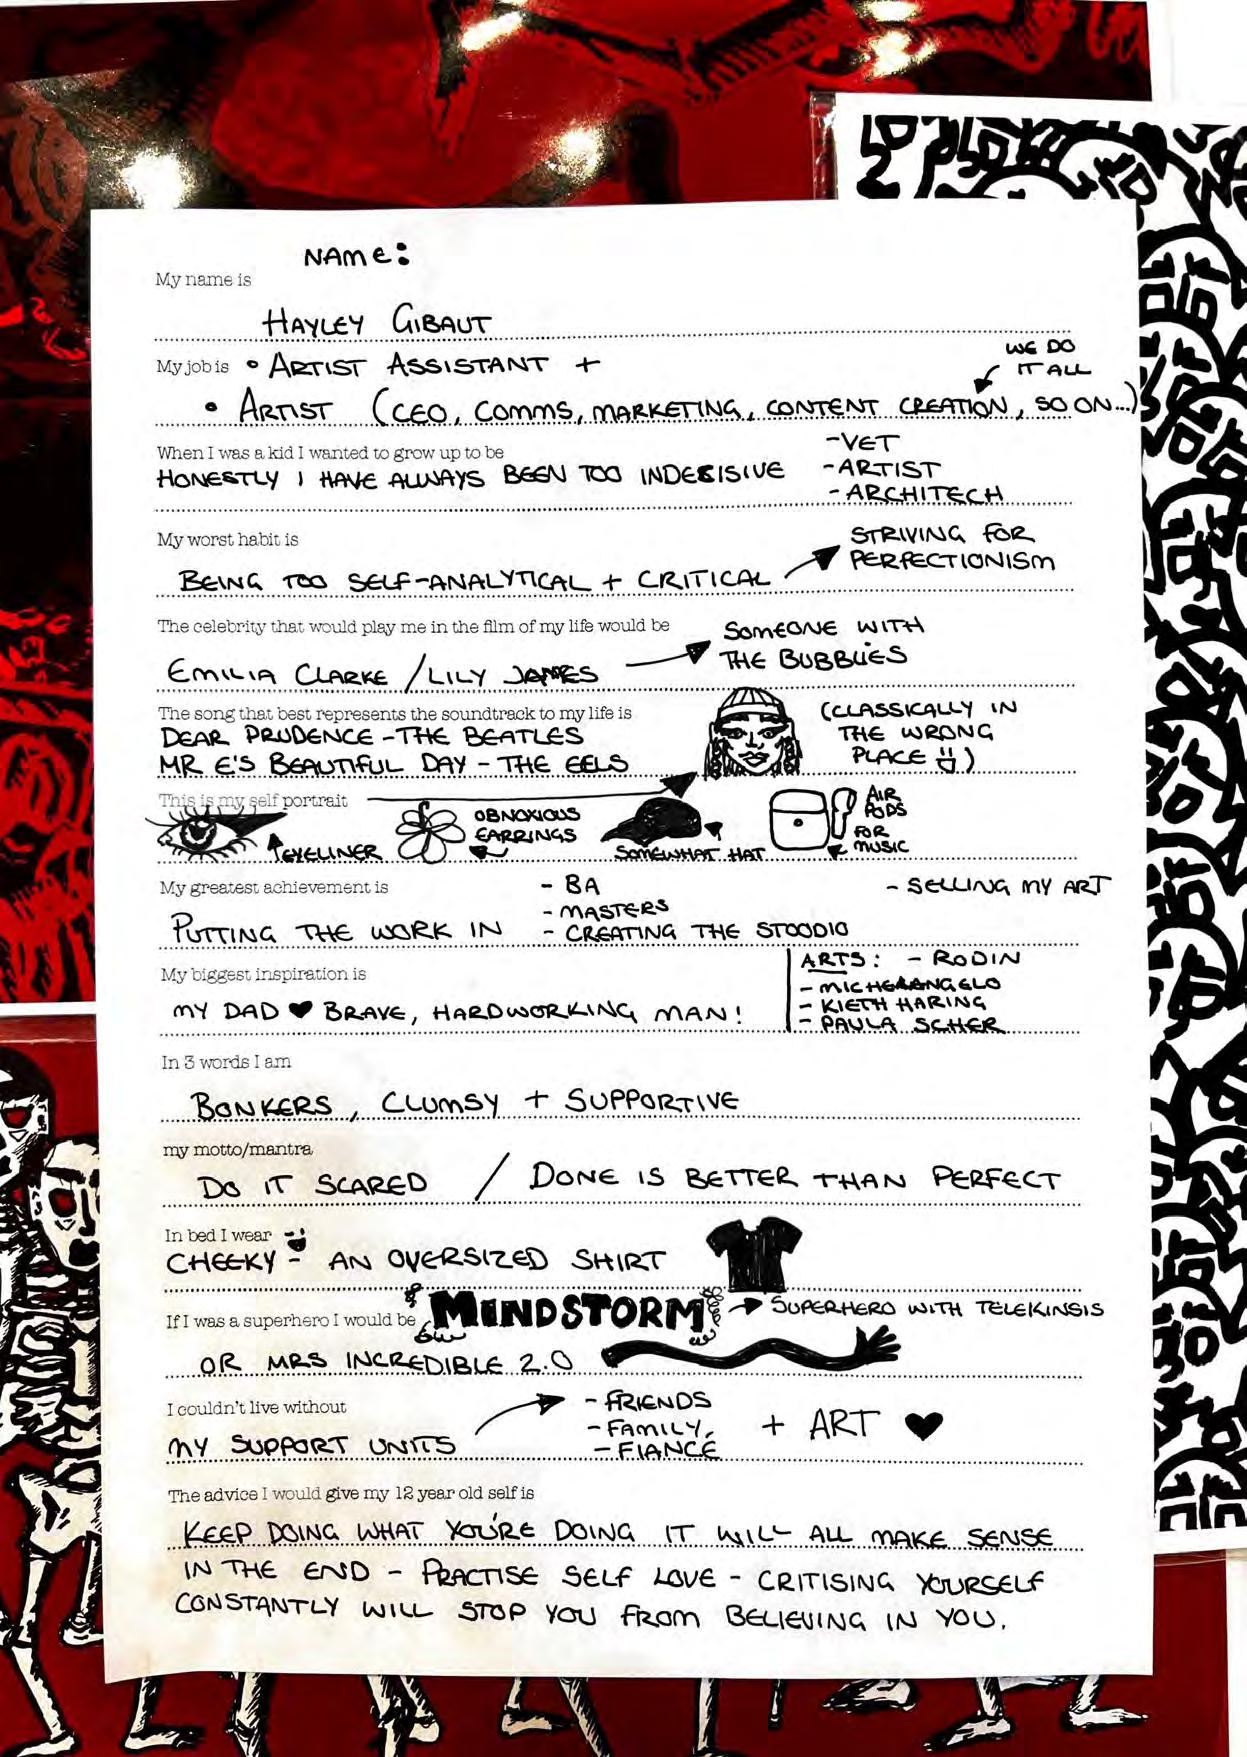 NAME:
My name is
HAYLEY GIBAUT
My job is • ARTIST ASSISTANT +
WE DO
IT ALL
• ARTIST (CEO, COMMS, MARKETING, CONTENT CREATION, SO ON...)
When I was a kid I wanted to grow up to be
HONESTLY I HAVE ALWAYS BEEN TOO INDECISIVE
- VET
- ARTIST
- ARCHITECH
My worst habit is
BEING TOO SELF-ANALYTICAL + CRITICAL
STRIVING FOR
PERFECTIONISM
The celebrity that would play me in the film of my life would be
EMILIA CLARKE / LILY JAMES
SOMEONE WITH
THE BUBBLIES
The song that best represents the soundtrack to my life is
DEAR PRUDENCE - THE BEATLES
MR E'S BEAUTIFUL DAY - THE EELS
(CLASSICALLY IN
THE WRONG
PLACE )
This is my self portrait
EYELINER
OBNOXIOUS
EARRINGS
SOMEWHAT HAT
AIR
PODS
FOR
MUSIC
My greatest achievement is
PUTTING THE WORK IN
- BA
- MASTERS
- CREATING THE STOODIO
- SELLING MY ART
My biggest inspiration is
MY DAD ♥ BRAVE, HARDWORKING MAN!
ARTS: - RODIN
- MICHELANGELO
- KIETH HARING
- PAULA SCHER
In 3 words I am
BONKERS, CLUMSY + SUPPORTIVE
my motto/mantra
DO IT SCARED / DONE IS BETTER THAN PERFECT
In bed I wear
CHEEKY - AN OVERSIZED SHIRT
If I was a superhero I would be MINDSTORM → SUPERHERO WITH TELEKINSIS
OR MRS INCREDIBLE 2.0
I couldn't live without
MY SUPPORT UNITS
- FRIENDS
- FAMILY,
- FIANCE
+ ART ♥
The advice I would give my 12 year old self is
KEEP DOING WHAT YOU'RE DOING IT WILL ALL MAKE SENSE
IN THE END - PRACTISE SELF LOVE - CRITISING YOURSELF
CONSTANTLY WILL STOP YOU FROM BELIEVING IN YOU.